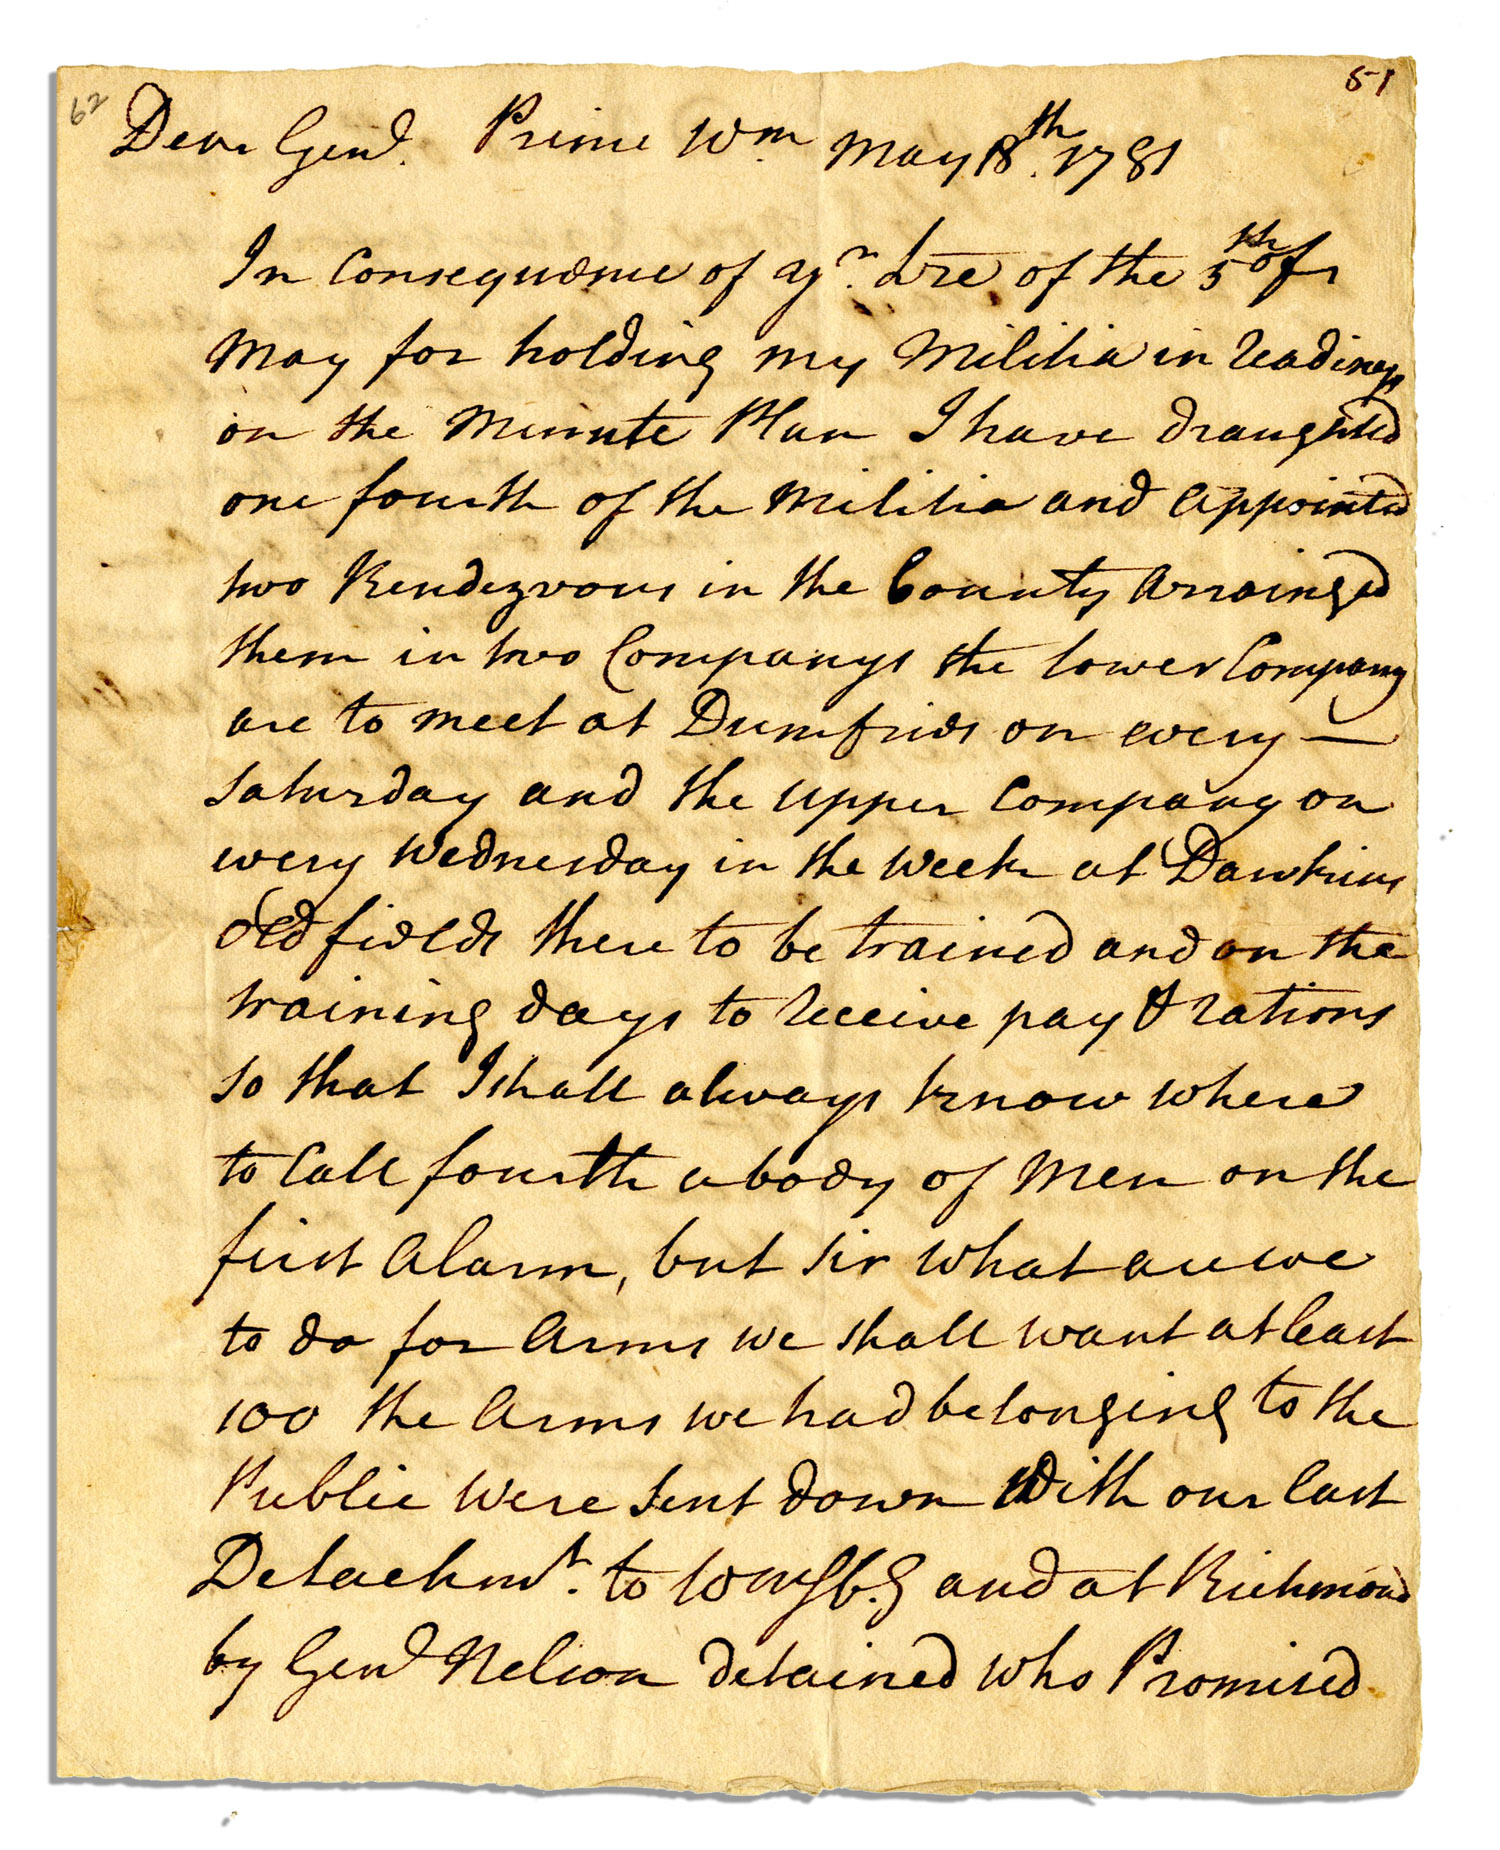 62
51
Dear Genl. Prince Wm May 18th. 1781
In Consequence of yr. Lre of the 5th of
May for holding my Militia in readiness
on the Minute Plan I have draughted
one fourth of the Militia and appointed
two Rendezvous in the County Arrainged
them in two Companys the lower Company
are to meet at Dumfries on every —
Saturday and the upper Company on
every Wednesday in the Week at Dawkins
old fields there to be trained and on the
training days to receive pay & rations
so that I shall always know where
to Call fourth a body of Men on the
first Alarm, but Sir what are we
to do for Arms we shall want at least
100 the Arms we had belonging to the
Public were sent down With our last
Detachmt. to Wmsb.g and at Richmond
by Genl Nelson detained who Promised